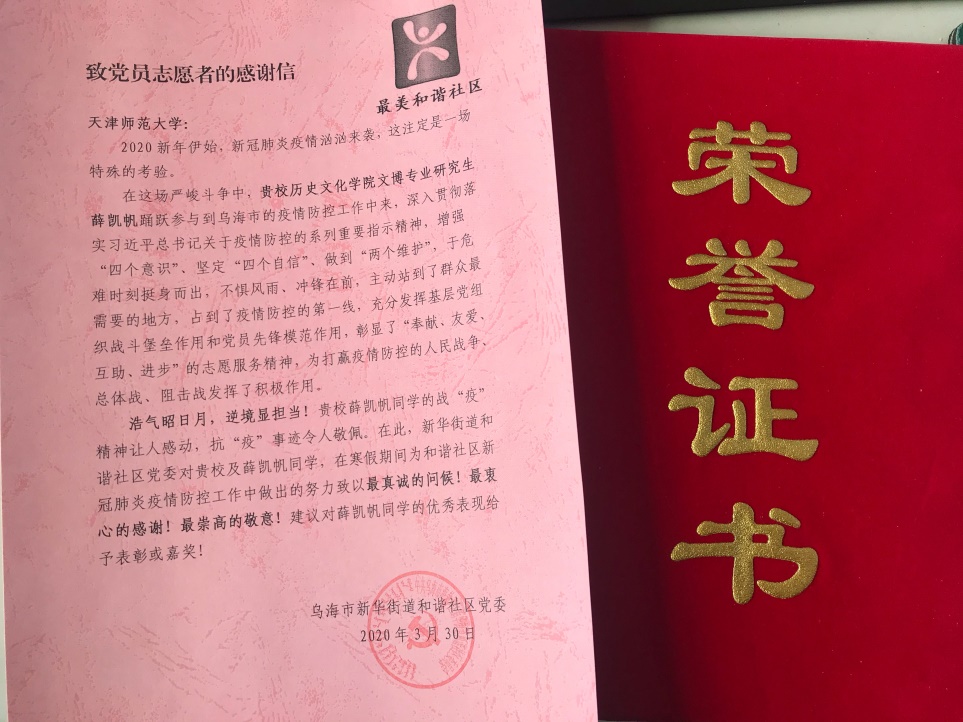 致党员志愿者的感谢信
最美和谐社区
天津师范大学：
2020 新年伊始，新冠肺炎疫情汹汹来袭，这注定是一场
特殊的考验。
在这场严峻斗争中，贵校历史文化学院文博专业研究生
薛凯帆踊跃参与到乌海市的疫情防控工作中来，深入贯彻落
实习近平总书记关于疫情防控的系列重要指示精神，增强
“四个意识”、坚定“四个自信”、做到“两个维护”，于危
难时刻挺身而出，不惧风雨、冲锋在前，主动站到了群众最
需要的地方，占到了疫情防控的第一线，充分发挥基层党组
织战斗堡垒作用和党员先锋模范作用，彰显了“奉献、友爱、
互助、进步”的志愿服务精神，为打赢疫情防控的人民战争、
总体战、阻击战发挥了积极作用。
浩气昭日月，逆境显担当！贵校薛凯帆同学的战“疫”
精神让人感动，抗“疫”事迹令人敬佩。在此，新华街道和
谐社区党委对贵校及薛凯帆同学，在寒假期间为和谐社区新
冠肺炎疫情防控工作中做出的努力致以最真诚的问候！最衷
心的感谢！最崇高的敬意！建议对薛凯帆同学的优秀表现给
予表彰或嘉奖！
乌海市新华街道和谐社区党委
2020 年 3 月 30 日
荣誉证书